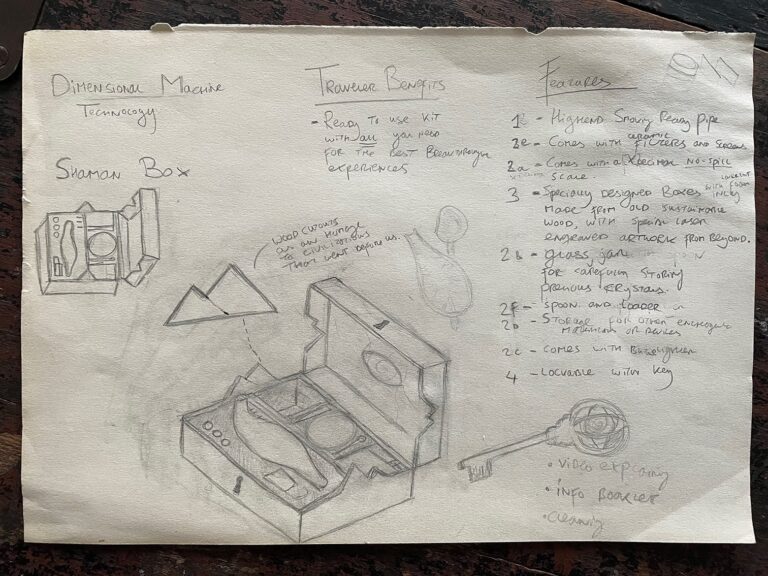 Dimensional Machine
Technology
Shaman Box
Traveler Benefits
- Ready to use kit
with all you need
for the best Breakthrough
experiences
Wood cutouts
as an homage
to civilizations
that went before us.
Features
1 - Highend Ready pipe
2e - Comes with ceramic filters and screens
2a - Comes with a decimal no-spill
scale.
3 - Specially designed Boxes with foam
made from old sustainable
wood, with special laser
engraved artwork from beyond.
2b - glass jar
for carefully storing
precious crystals.
2f - spoon and loader
2d - Storage for other
or devices
2c - comes with
4 - Lockable with key
• Video
• info Booklet